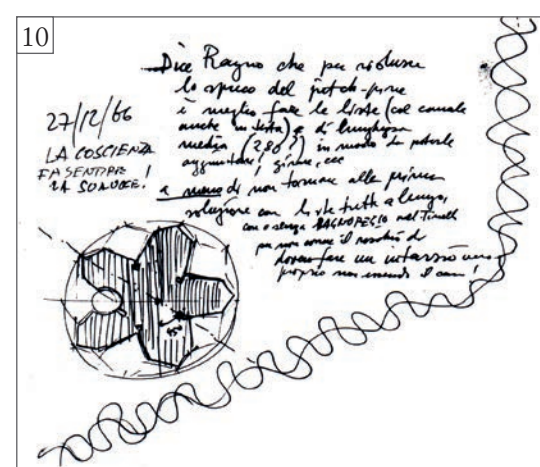 10
Dice Ragno che per risolvere
lo spreco del pitch-pine
è meglio fare le liste (col canale
anche in testa) e di lunghezza
media (280?) in modo da poterle
aggiuntare, girare, ecc
a meno di non tornare alla prima
soluzione con liste tutte a lungo,
con o senza RAGNOPEGIO nel
per non correre il rischio di
dover fare un intarsio vero
proprio non essendo il caso!
27/12/66
LA COSCIENZA
FA SENTIRE
LA SUA VOCE!
45°